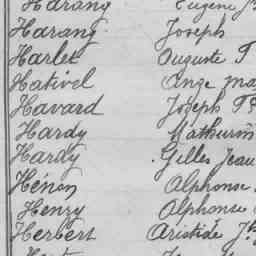 Harang Eugène
Harang Joseph
Harlet Auguste
Hativel Ange
Havard Joseph
Hardy Mathurin
Hardy Gilles Jean
Hénon Alphonse
Henry Alphonse
Herbert Aristide